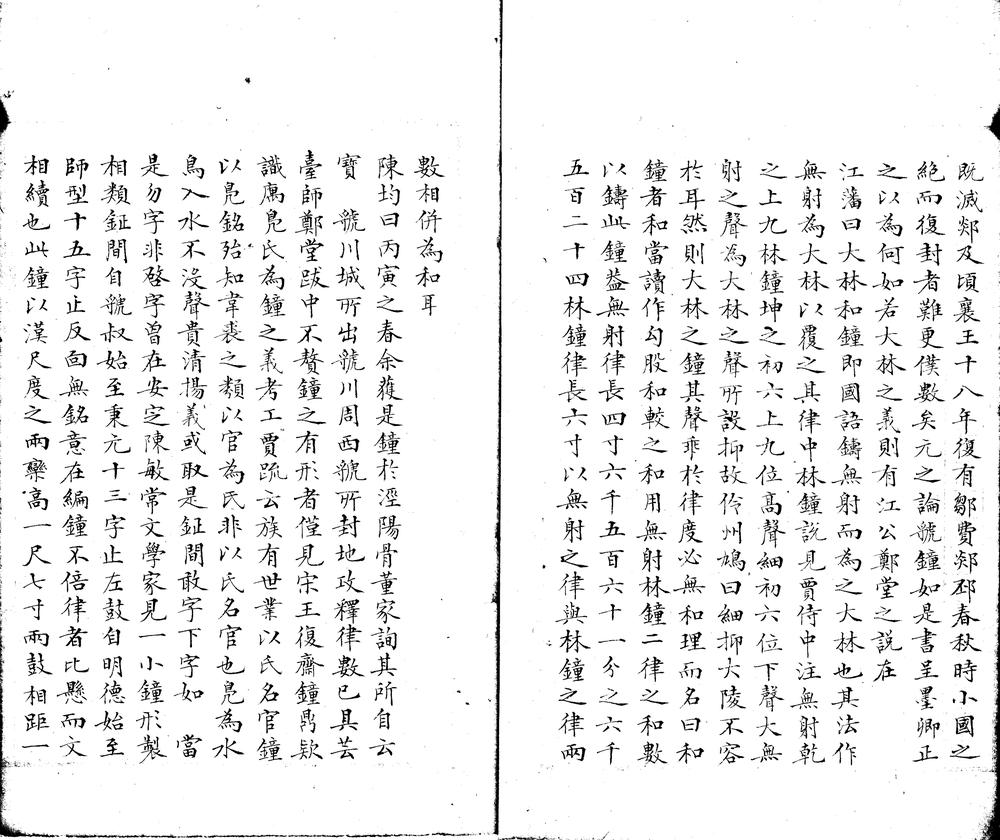 既滅郯及頃襄王十八年復有鄒費郯邳春秋時小國之
絕而復封者難更僕數矣元之論虢鐘如是書呈墨卿正
之以為何如若大林之義則有江公鄭堂之說在
江藩曰大林和鐘即國語鑄無射而為之大林也其法作
無射為大林以覆之其律中林鐘說見賈侍中注無射乾
之上九林鐘坤之初六上九位高聲細初六位下聲大無
射之聲為大林之聲所設抑故伶州鳩曰細抑大陵不容
於耳然則大林之鐘其聲乖於律度必無和理而名曰和
鐘者和當讀作勾股和較之和用無射林鐘二律之和數
以鑄此鐘葢無射律長四寸六千五百六十一分之六千
五百二十四林鐘律長六寸以無射之律與林鐘之律兩
數相併為和耳
陳均曰丙寅之春余蒦是鐘於涇陽骨董家詢其所自云
寶 虢川城所出虢川周西虢所封地攷釋律數已具芸
臺師鄭堂跋中不贅鐘之有形者僅見宋王復齋鐘鼎欵
識厲鳧氏為鐘之義考工賈疏云族有世業以氏名官鐘
以鳧銘殆知韋裘之類以官為氏非以氏名官也鳧為水
鳥入水不沒聲貴清揚義或取是鉦間敢字下字如 當
是勿字非啓字曽在安定陳敏常文學家見一小鐘形製
相類鉦間自虢叔始至秉元十三字止左鼓自明德始至
師型十五字止反面無銘意在編鐘不倍律者比懸而文
相續也此鐘以漢尺度之兩欒高一尺七寸兩鼓相距一